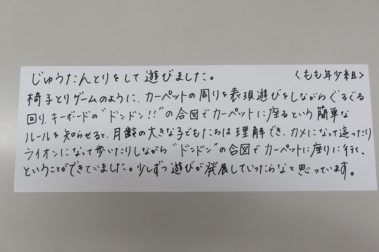 じゅうたんとりをして遊びました。 〈もも年少組〉
椅子とりゲームのように、カーペットの周りを表現遊びをしながらぐるぐる
回り、キーボードの"ドンドン!!"の合図でカーペットに座るという簡単な
ルールを知らせると、月齢の大きな子どもたちは理解でき、カメになって這ったり
ライオンになって歩いたりしながら"ドンドン"の合図でカーペットに座りに行く、
ということができていました。少しずつ遊びが発展していったらなと思っています。